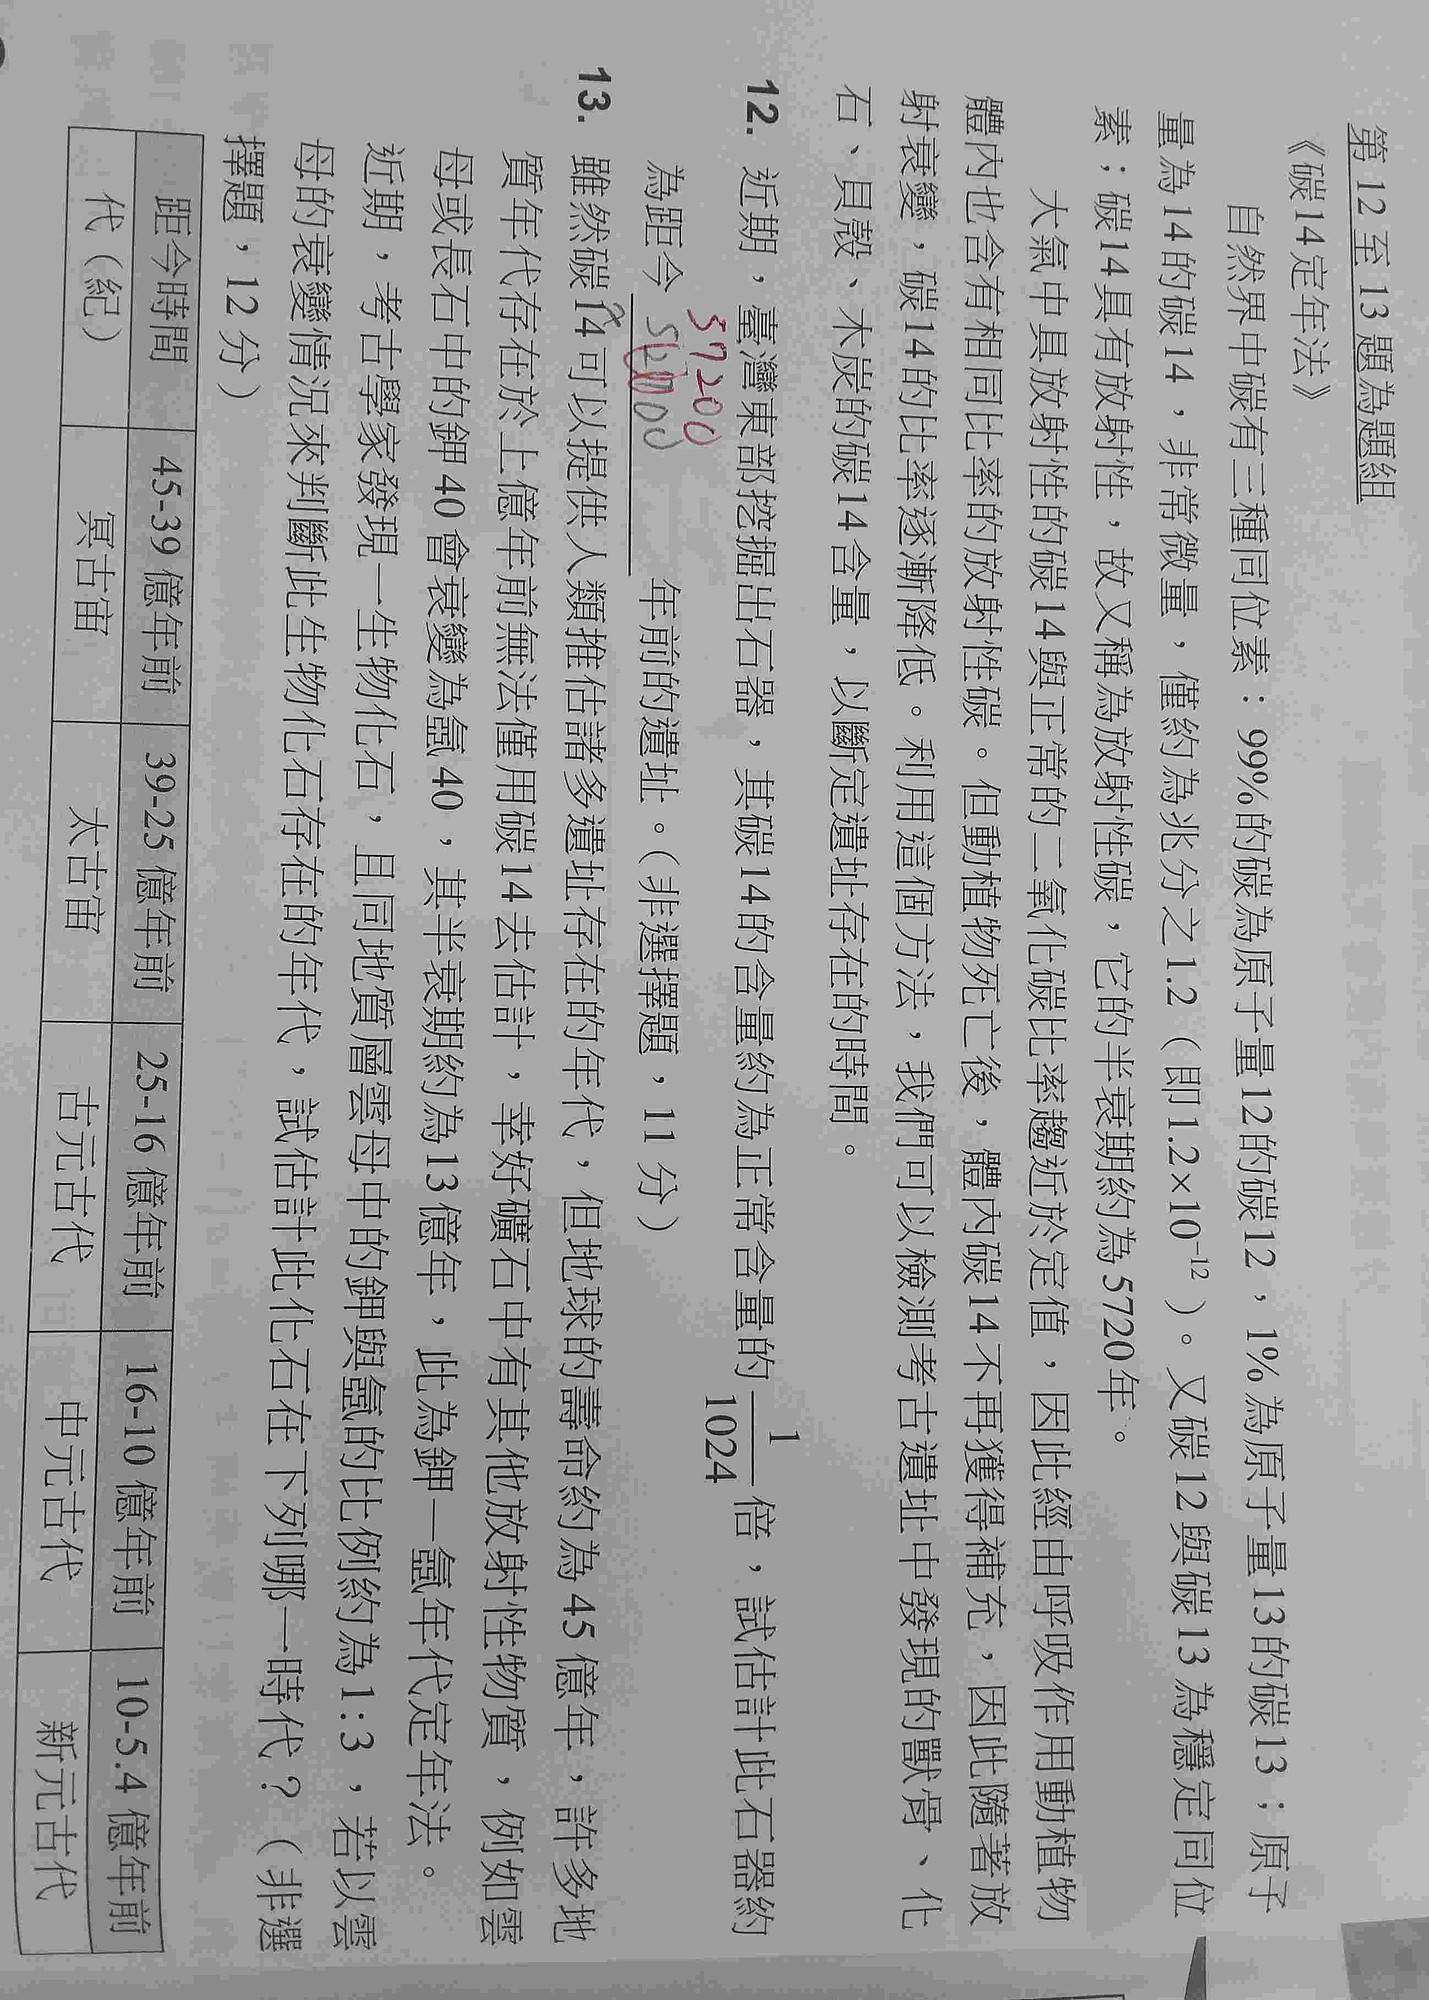 第12至13題為題組
《碳14定年法》
自然界中碳有三種同位素：99%的碳為原子量12的碳12，1%為原子量13的碳13；原子
量為14的碳14，非常微量，僅約為兆分之1.2（即1.2×10⁻¹²）。又碳12與碳13為穩定同位
素；碳14具有放射性，故又稱為放射性碳，它的半衰期約為5720年。
大氣中具放射性的碳14與正常的二氧化碳比率趨近於定值，因此經由呼吸作用動植物
體內也含有相同比率的放射性碳。但動植物死亡後，體內碳14不再獲得補充，因此隨著放
射衰變，碳14的比率逐漸降低。利用這個方法，我們可以檢測考古遺址中發現的獸骨、化
石、貝殼、木炭的碳14含量，以斷定遺址存在的時間。
12. 近期，臺灣東部挖掘出石器，其碳14的含量約為正常含量的 1/1024 倍，試估計此石器約
57200
為距今 年前的遺址。（非選擇題，11分）
13. 雖然碳14可以提供人類推估諸多遺址存在的年代，但地球的壽命約為45億年，許多地
質年代存在於上億年前無法僅用碳14去估計，幸好礦石中有其他放射性物質，例如雲
母或長石中的鉀40會衰變為氬40，其半衰期約為13億年，此為鉀—氬年代定年法。
近期，考古學家發現一生物化石，且同地質層雲母中的鉀與氬的比例約為1:3，若以雲
母的衰變情況來判斷此生物化石存在的年代，試估計此化石在下列哪一時代？（非選
擇題，12分）
距今時間 45-39億年前 39-25億年前 25-16億年前 16-10億年前 10-5.4億年前
代（紀） 冥古宙 太古宙 古元古代 中元古代 新元古代